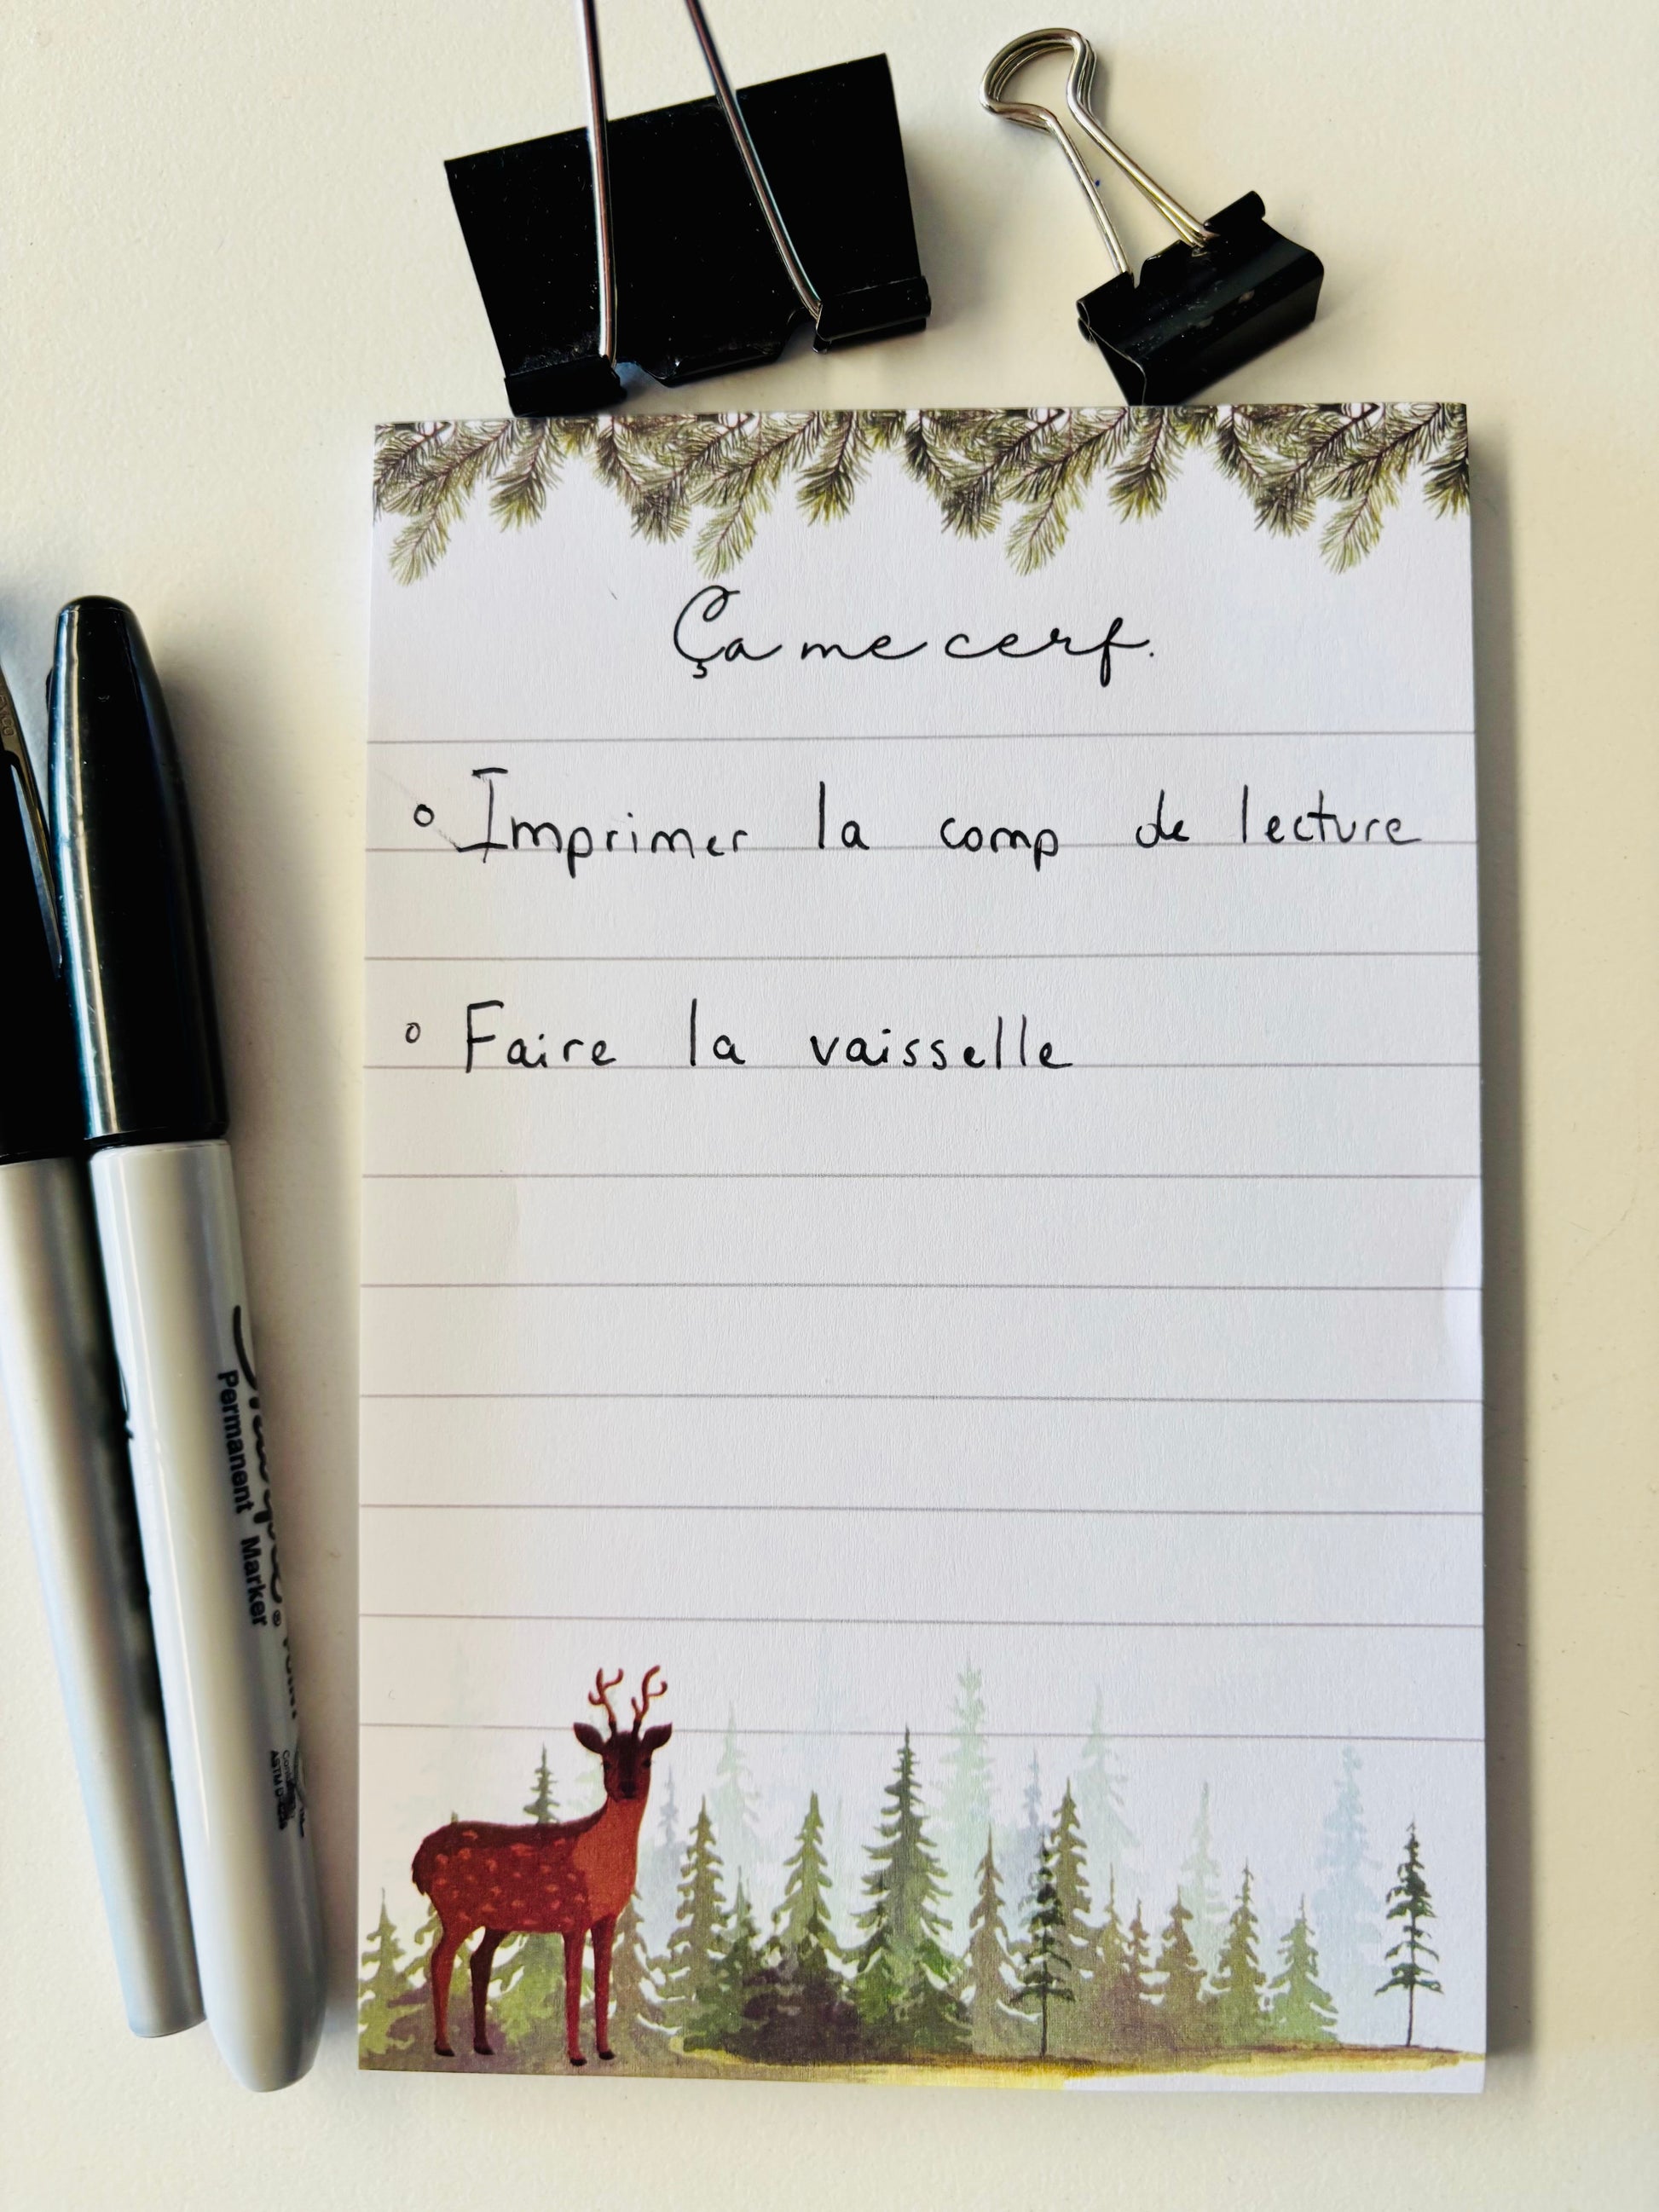 Ça me cerf.
Imprimer la comp de lecture
Faire la vaisselle
Permanent Marker